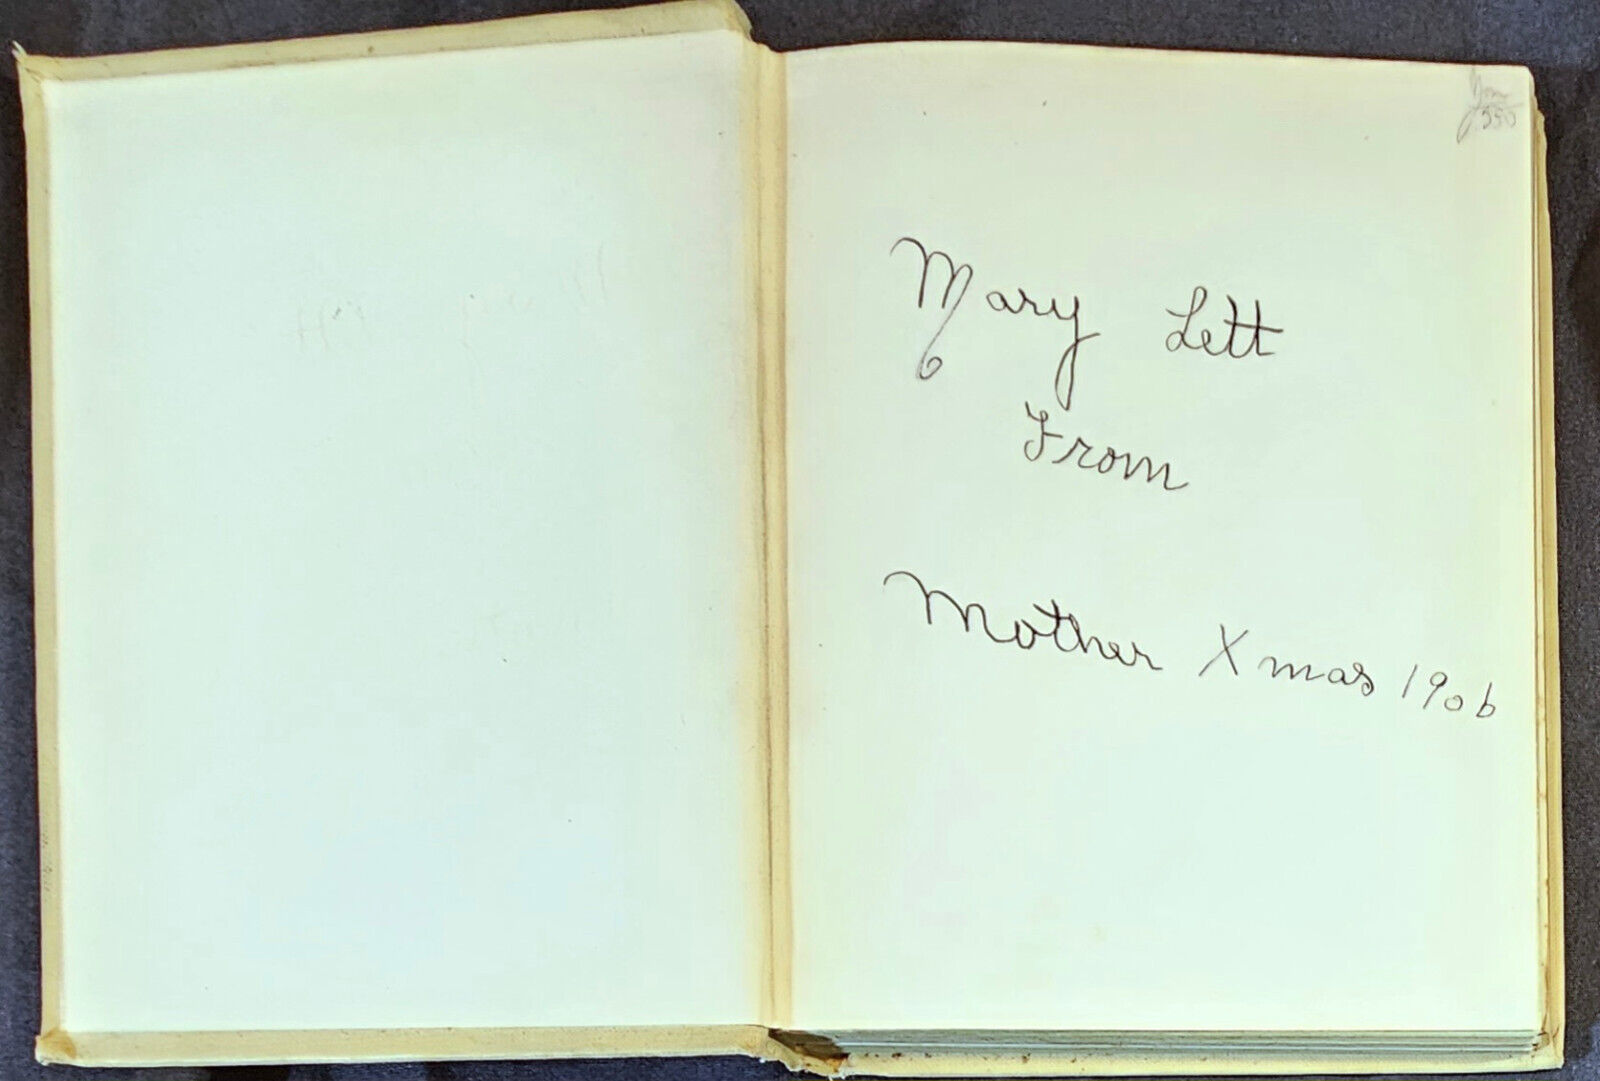 Mary Lett
From
Mother Xmas 1906